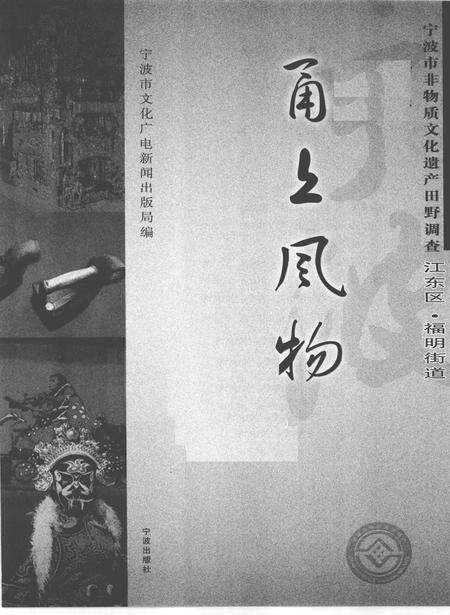 宁波市非物质文化遗产田野调查
江东区·福明街道
甬上风物
宁波市文化广电新闻出版局编
宁波出版社